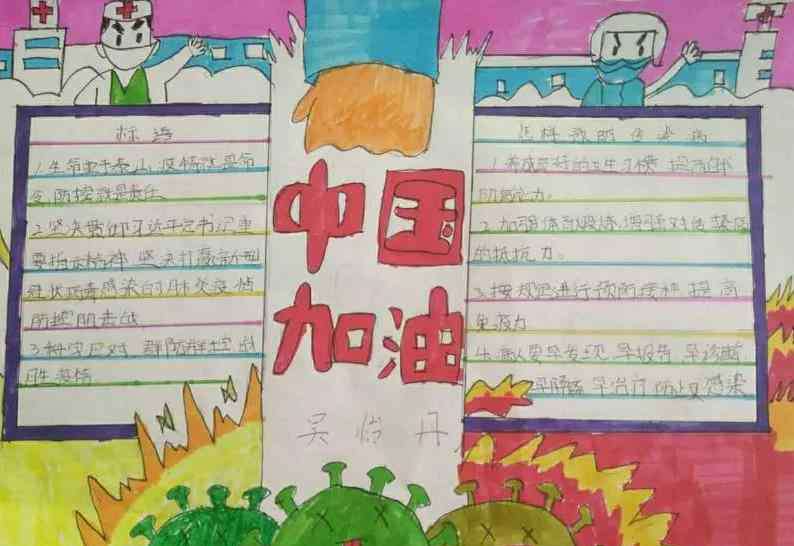 标语
1.生命重于泰山,疫情就是命
令,防控就是责任
2.坚决贯彻习近平总书记重
要指示精神 坚决打赢新型
冠状病毒感染的肺炎疫情
防控阻击战
3.科学应对 群防群控 战
胜疫情
中国
加油
吴怡丹
怎样预防传染病
1.养成良好的卫生习惯 提高自我
防病能力。
2.加强体育锻炼,增强对传染病
的抵抗力。
3.按规定进行预防接种 提高
免疫力
4.确要早发现 早报告 早诊断
早隔离 早治疗 防止交叉感染